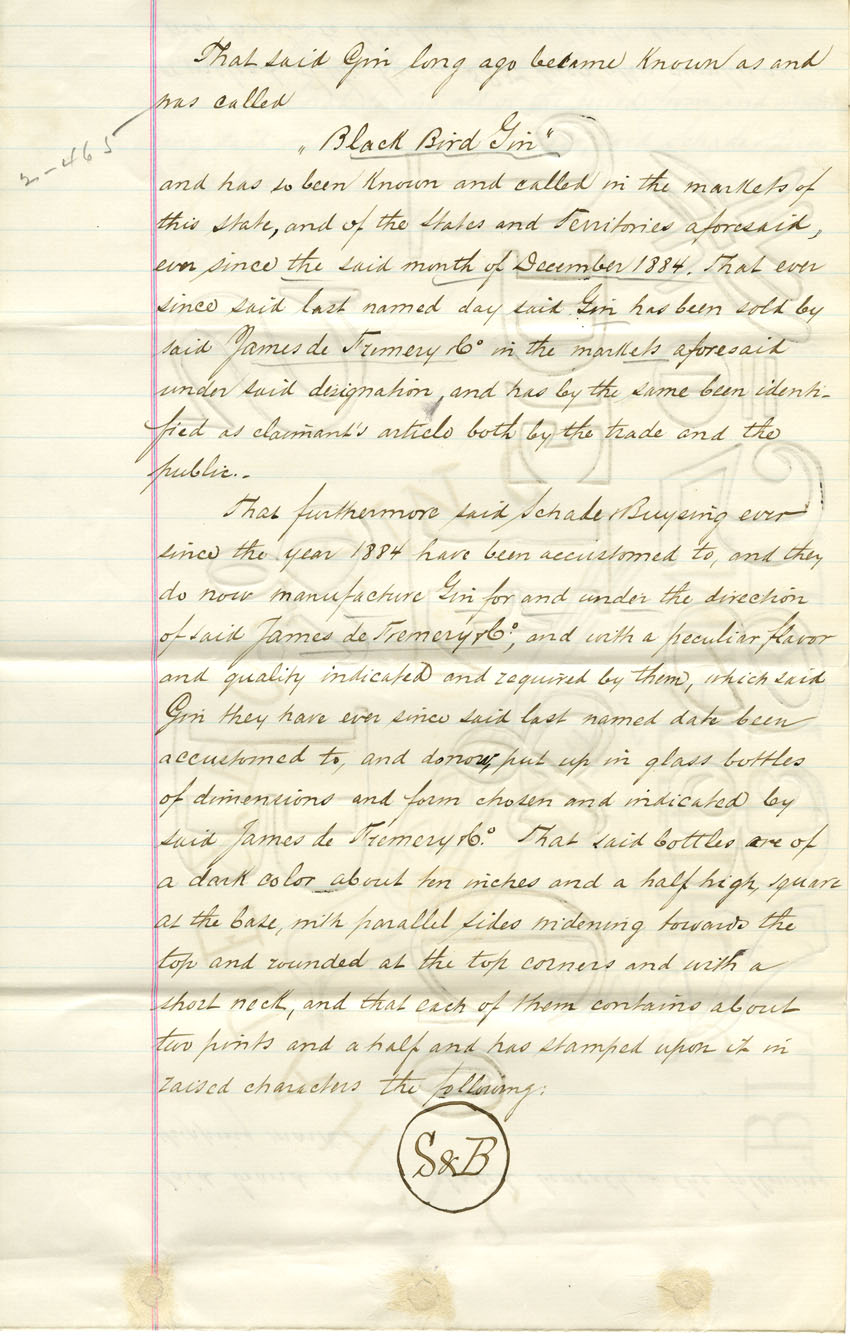 That said Gin long ago became Known as and
was called
„Black Bird Gin"
2-465
and has so been Known and called in the markets of
this state, and of the States and Territories aforesaid,
ever since the said month of December 1884. That ever
since said last named day said Gin has been sold by
said James de Fremery & Co in the markets aforesaid
under said designation, and has by the same been identi-
fied as claimant's article both by the trade and the
public.-
That furthermore said Schade & Buysing ever
since the year 1884 have been accustomed to, and they
do now manufacture Gin for and under the direction
of said James de Fremery & Co, and with a peculiar flavor
and quality indicated and required by them, which said
Gin they have ever since said last named date been
accustomed to, and do now, put up in glass bottles
of dimensions and form chosen and indicated by
said James de Fremery & Co. That said bottles are of
a dark color about ten inches and a half high, square
at the base, with parallel sides widening towards the
top and rounded at the top corners and with a
short neck, and that each of them contains about
two pints and a half and has stamped upon it in
raised characters the following:
S&B